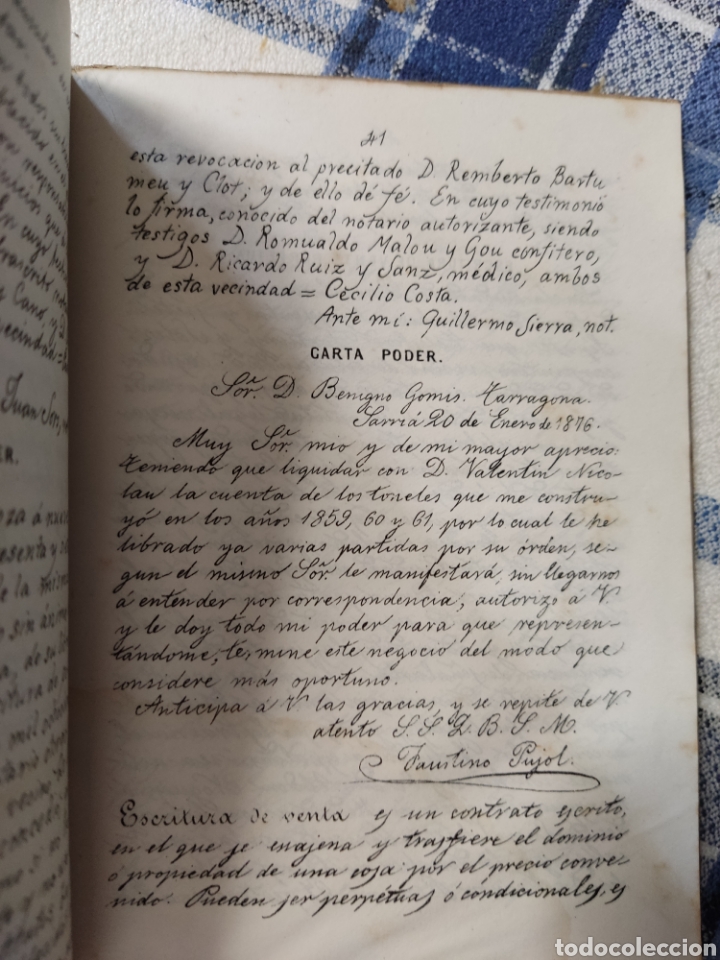 41
esta revocacion al precitado D. Remberto Bartu
meu y Clot; y de ello dé fé. En cuyo testimonio
lo firma, conocido del notario autorizante, siendo
testigos D. Romualdo Malou y Gou confitero,
y D. Ricardo Ruiz y Sanz, médico, ambos
de esta vecindad = Cecilio Costa.
Ante mí: Guillermo Sierra, not.
CARTA PODER.
Sor. D. Benigno Gomis. Tarragona.
Sarriá 20 de Enero de 1876.
Muy Sor. mio y de mi mayor aprecio:
teniendo que liquidar con D. Valentin Nico-
lau la cuenta de los toneles que me constru-
yó en los años 1859, 60 y 61, por lo cual le he
librado ya varias partidas por su órden, se-
gun el mismo Sor. le manifestará, sin llegarnos
á entender por correspondencia, autorizo á V.
y le doy todo mi poder para que represen-
tándome, te, mine este negocio del modo que
considere más oportuno.
Anticipa á V las gracias, y se repite de V
atento S. S. Q. B. S. M.
Faustino Pujol.
Escritura de venta es un contrato escrito,
en el que se enajena y trasfiere el dominio
ó propiedad de una cosa por el precio conve-
nido. Pueden ser perpétuas ó condicionales, es
todocoleccion